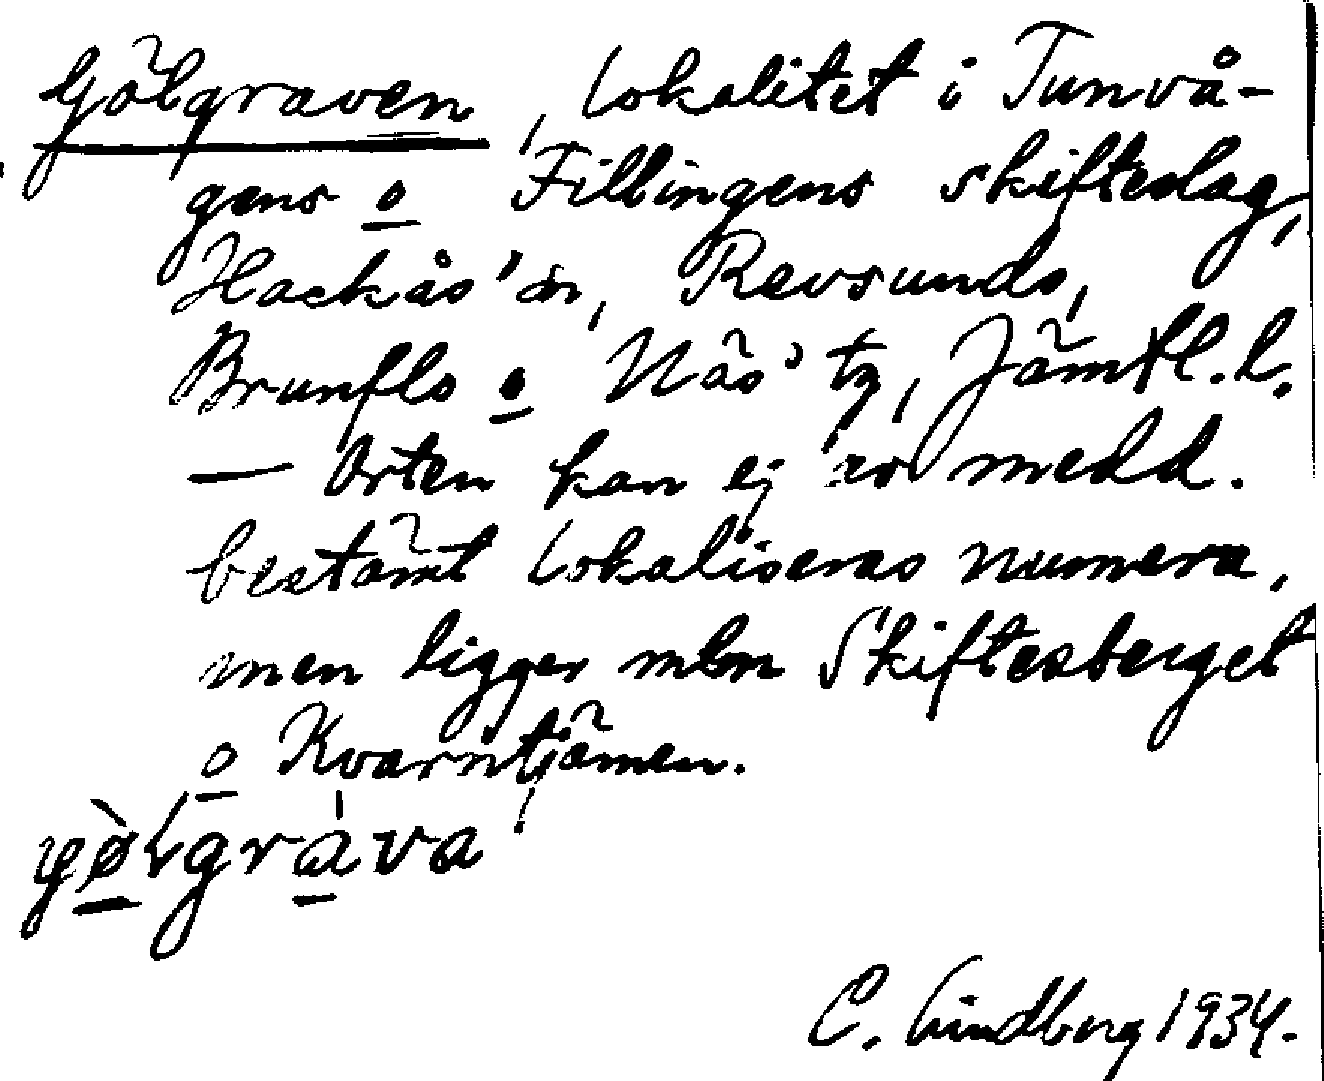 Gölgraven, lokalitet i Tunvå-
gens o Fillingens skifteslag,
Hackås' sn, Revsunds,
Brunflo o Näs' tg, Jämtl. l.
— Orten kan ej av medd.
bestämt lokaliseras numera,
men ligger mlm Skiftesberget
o Kvarntjärnen.
C. Lindberg 1934.